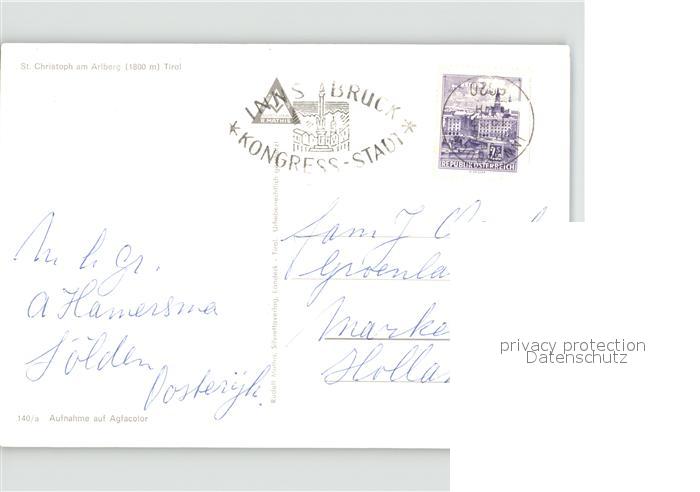 St. Christoph am Arlberg (1800 m) Tirol
INNSBRUCK
*KONGRESS-STADT*
R. MATHIS
REPUBLIK ÖSTERREICH
M. h. gr.
A Hamersma
Sölden
Oosterijk.
Fam J
Groenla
Marke
Holla
Rudolf Mathis, Silvrettaverlag, Landeck - Tirol. Urheberrechtlich
140/a Aufnahme auf Agfacolor
privacy protection
Datenschutz